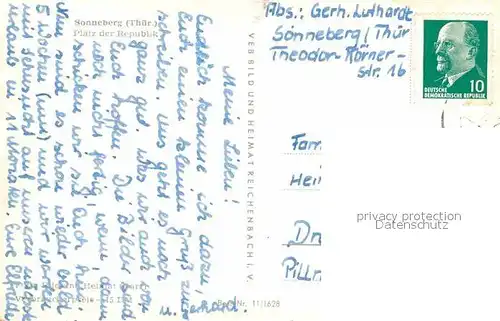 Sonneberg (Thür.)
Platz der Republik
Meine Lieben!
Endlich komme ich dazu,
Euch einen kleinen Gruß zu
schreiben. Uns geht es noch
ganz gut, was wir auch von
Euch hoffen. Die Bilder sind
noch nicht fertig, wenn dann
schicken wir sie Euch
Nun sind es schon wieder bald
5 Wochen (um) und wir warten
mit Sehnsucht auf unseren
Urlaub in 11 Monaten. Eure Elfriede
u. Gerhard.
VEB BILD UND HEIMAT REICHENBACH I. V.
Best.-Nr. 11/1628
Abs.: Gerh. Luthardt
Sonneberg/Thür
Theodor-Körner-
Str. 16
10
DEUTSCHE
DEMOKRATISCHE REPUBLIK
Fam
Hei
Dr
Pilln
privacy protection
for Downloads